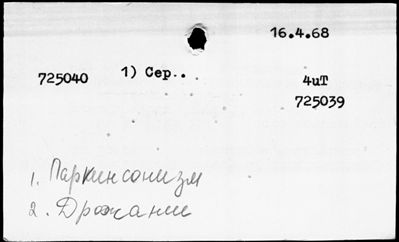 16.4.68
725040 1) Сер.. 4иТ
725039
1. Паркинсонизм
2. Дрожание